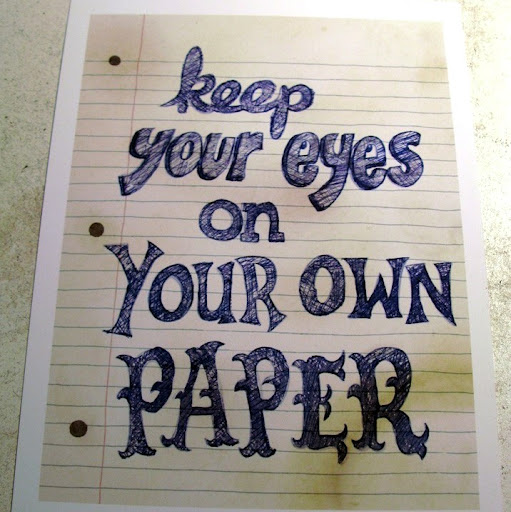 keep
your eyes
on
YOUR OWN
PAPER